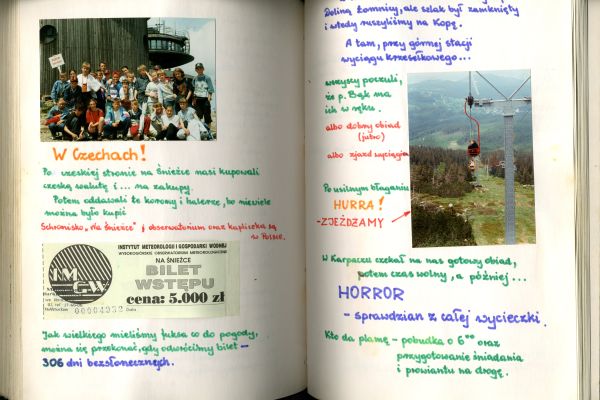 W Czechach!
Po czeskiej stronie na Śnieżce nasi kupowali
czeską walutę i... na zakupy.
Potem oddawali te korony i halerze, bo niewiele
można było kupić
Schronisko „Na Śnieżce" i obserwatorium oraz kapliczka są
w Polsce.
IMGW
INSTYTUT METEOROLOGII I GOSPODARKI WODNEJ
WYSOKOGÓRSKIE OBSERWATORIUM METEOROLOGICZNE
NA ŚNIEŻCE
BILET
WSTĘPU
cena: 5.000 zł
Jak wielkiego mieliśmy fuksa co do pogody,
można się przekonać, gdy odwrócimy bilet –
306 dni bezsłonecznych.
Doliną Łomnicy, ale szlak był zamknięty
i wtedy ruszyliśmy na Kopę.
A tam, przy górnej stacji
wyciągu krzesełkowego...
wszyscy poczuli,
że p. Bąk ma
ich w ręku.
albo dobry obiad
(jutro)
albo zjazd wyciągiem
Po usilnym błaganiu
HURRA!
-ZJEŻDŻAMY
W Karpaczu czekał na nas gotowy obiad,
potem czas wolny, a później...
HORROR
- sprawdzian z całej wycieczki.
Kto da plamę – pobudka o 6⁰⁰ oraz
przygotowanie śniadania
i prowiantu na drogę.